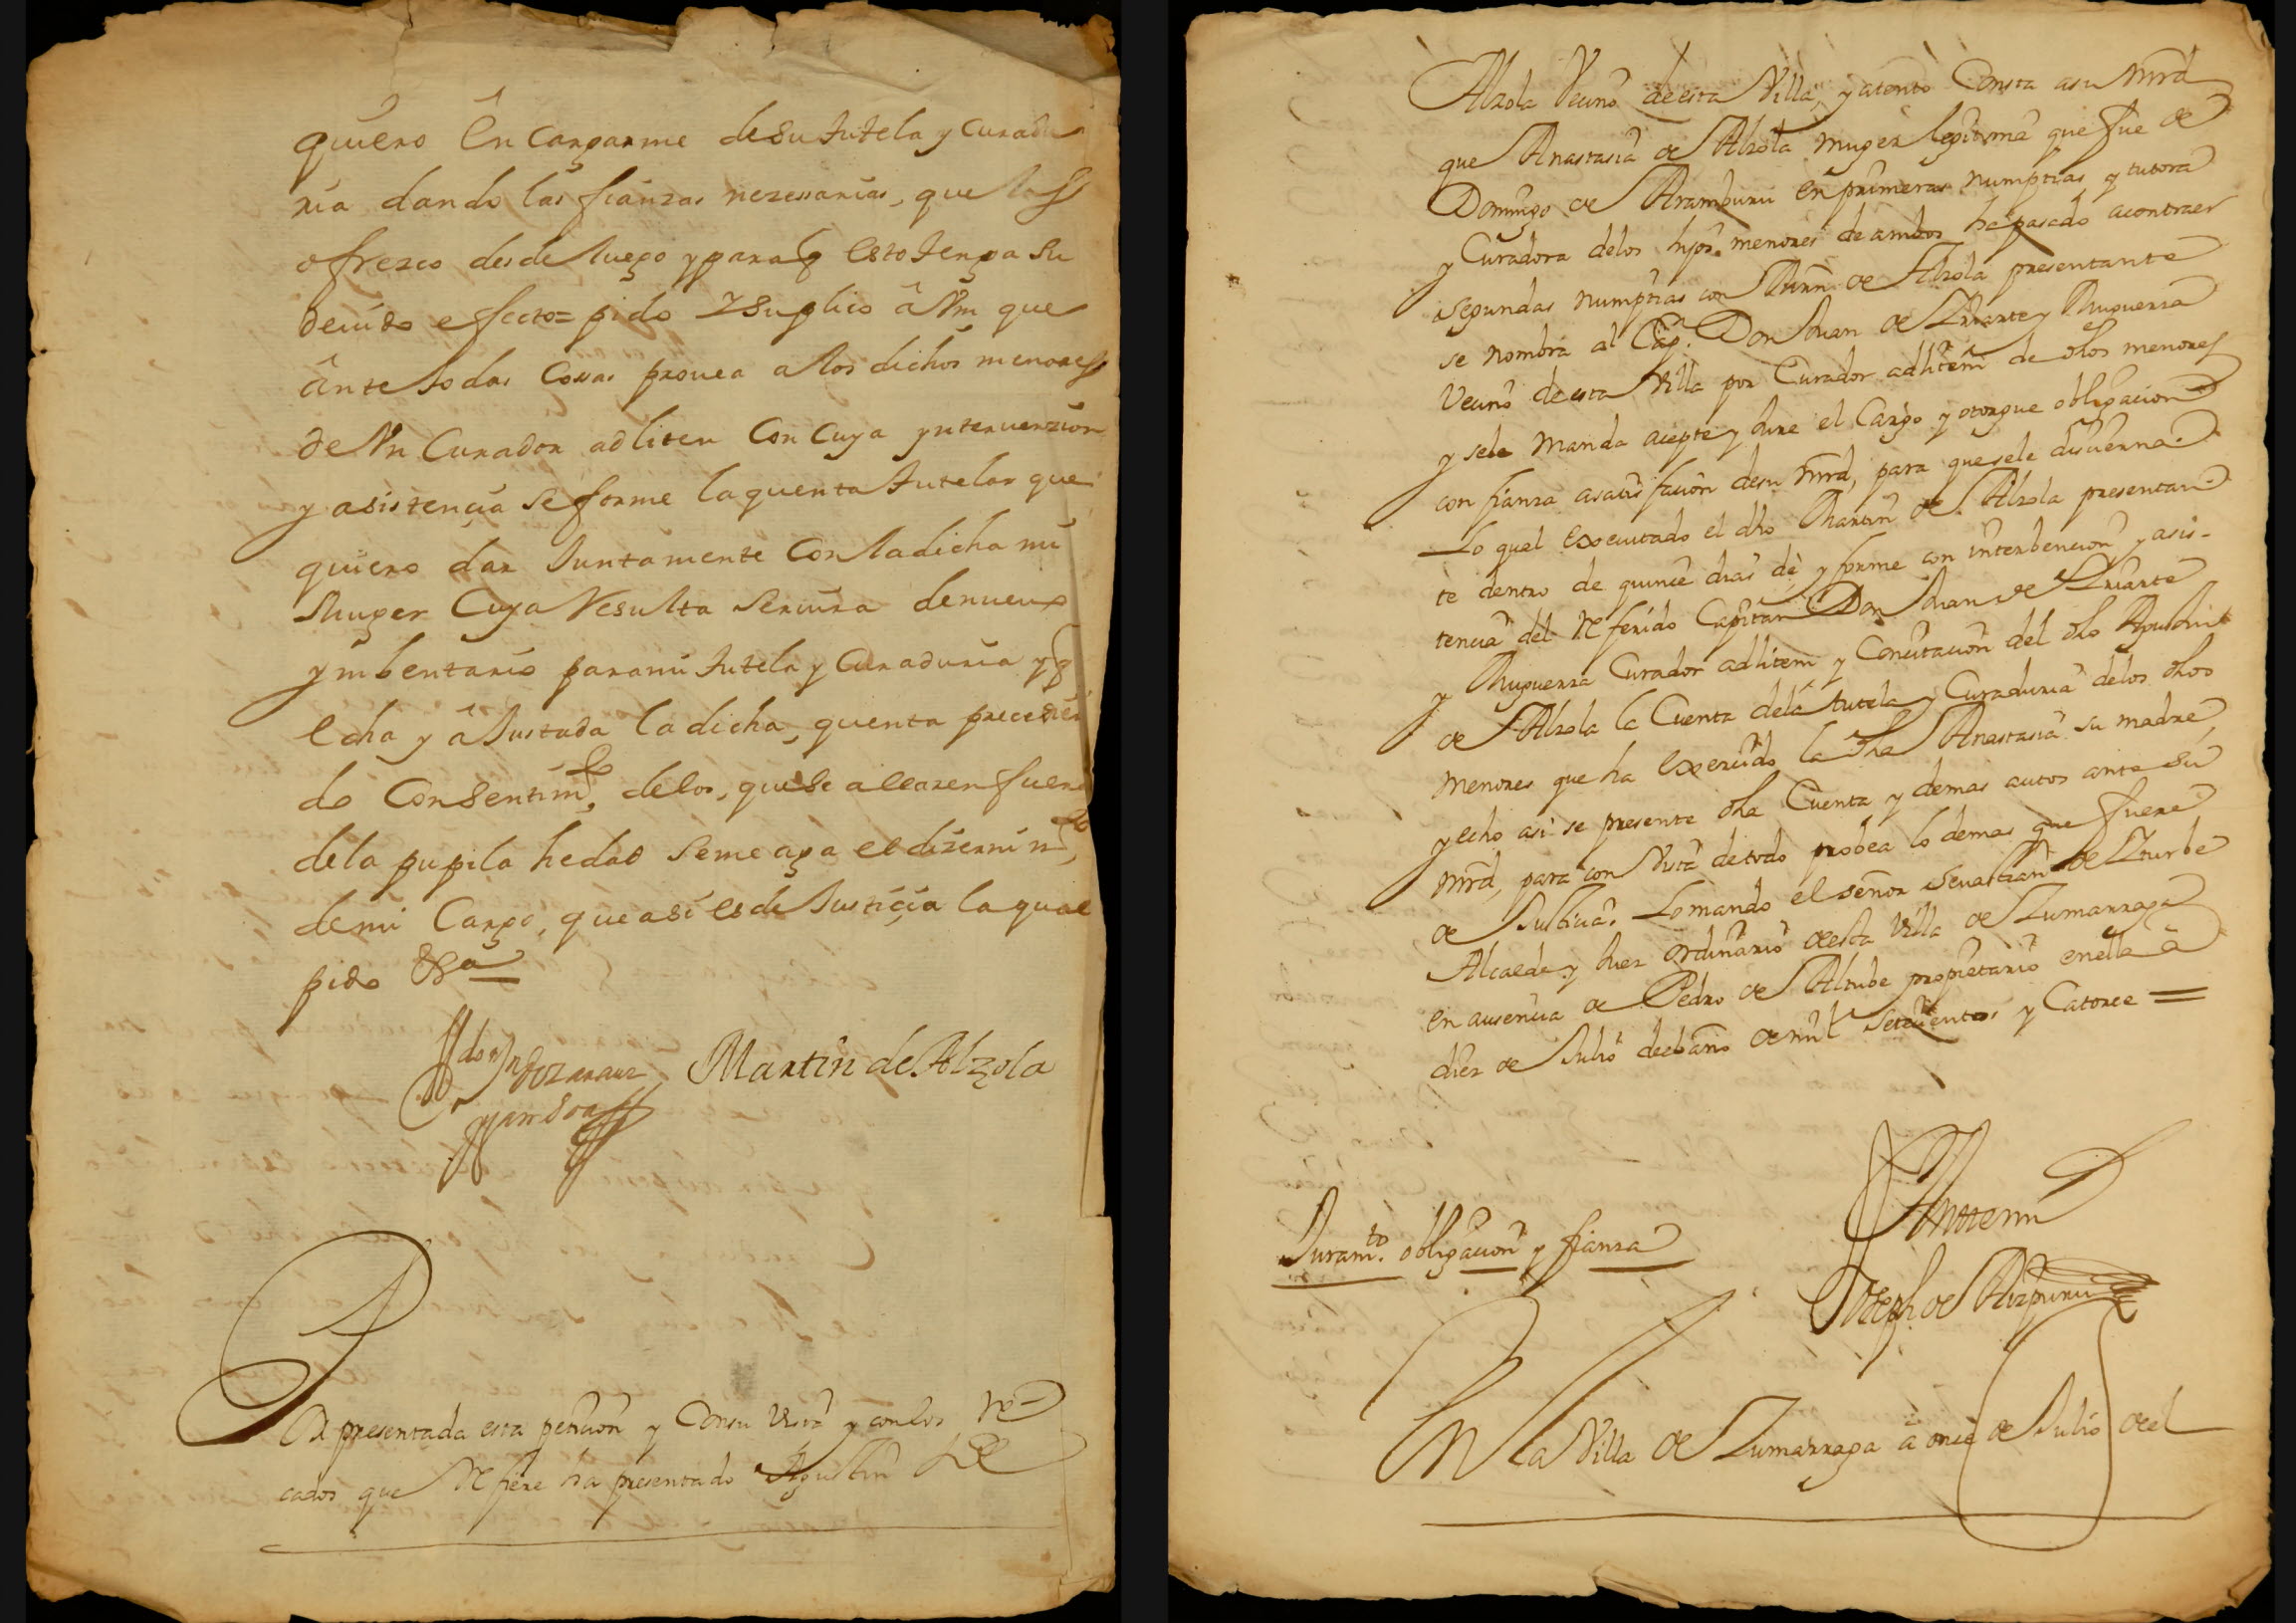 quiero En Cargarme de su tutela y curadu
ria dando las fianzas nezessarias, que las
ofrezco desde luego y para q esto tenga su
deuido efecto = pido Y Suplico â Vm que
ânte todas Cossas prouea a los dichos menores
de Vn Curador ad liten Con Cuya ynteruenzion
y asistencia se forme la quenta tutelar que
quiero dar Juntamente Con la dicha mi
Muger Cuya Resulta seruira de nueuo
ymbentario para mi tutela y Curaduria y q
echa y âJustada la dicha quenta precedien
do Consentim.to de los, que se allaren fuera
de la pupila hedad se me aga el dizernim.to
de mi Cargo, que asi es de Justiçia la qual
pido Ss.a
Martin de Alzola
Por presentada esta peticion y Con su vista y con los re
cados que Refiere ha presentado Agustin de
Alzola Vecino de esta Villa, y atento Consta a su mrd
que Anastasia de Alzola muger legitima que fue de
Domingo de Aramburu en primeras numptias y tutora
y Curadora de los hijos menores de ambos ha pasado a contraer
segundas numptias con Mrn de Alzola presentante
se nombra al Cap. Don Juan de Yriarte y Muguerza
Vecino de esta Villa por Curador adlitem de dhos menores
y se le manda acepte y Jure el Cargo y otorgue obligacion
con fianza a satisfacion de su mrd, para que se le discierna.
Lo qual executado el dho Martin de Alzola presentan
te dentro de quince dias dè y forme con interbencion y asis-
tencia del Referido Capitan Don Juan de Yriarte
y Muguerza Curador adlitem y Concitacion del dho Agustin
de Alzola la Cuenta de la tutela y Curaduria de los dhos
menores que ha exercido la dha Anastasia su madre,
y echo asi se presente dha Cuenta y demas autos ante su
mrd, para con Vista de todo probea lo demas que fuere
de Justicia. Lo mando el señor Sevastian de Yturbe
Alcalde y Juez ordinario de esta Villa de Zumarraga
en ausencia de Pedro de Altube propietario en ella à
diez de Julio de el año de mil setecientos y Catorce =
Ante mi
Joseph de Aizpuru
Juram.to obligacion y fianza
En la Villa de Zumarraga à once de Julio de el